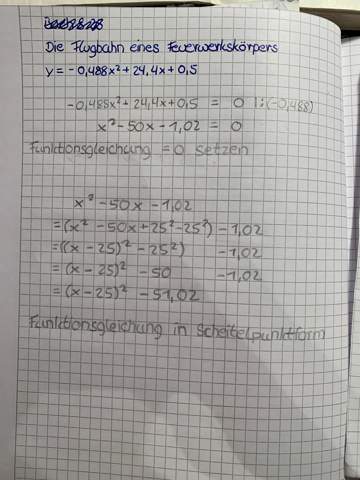 Die Flugbahn eines Feuerwerkskörpers
y = -0,488x² + 24,4x + 0,5
-0,488x² + 24,4x + 0,5 = 0 |:(-0,488)
x² - 50x - 1,02 = 0
Funktionsgleichung = 0 setzen
x² - 50x - 1,02
= (x² - 50x + 25² - 25²) - 1,02
= ((x - 25)² - 25²) - 1,02
= (x - 25)² - 50 - 1,02
= (x - 25)² - 51,02
Funktionsgleichung in Scheitelpunktform